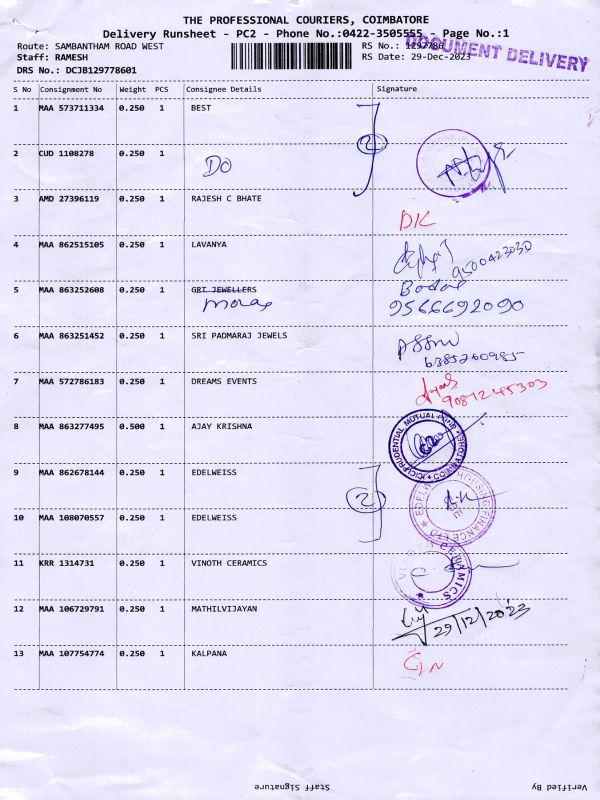 THE PROFESSIONAL COURIERS, COIMBATORE
Delivery Runsheet - PC2 - Phone No.:0422-3505555 - Page No.:1
Route: SAMBANTHAM ROAD WEST RS No.: 1297786
DOCUMENT DELIVERY
Staff: RAMESH RS Date: 29-Dec-2023
DRS No.: DCJB129778601
S No Consignment No Weight PCS Consignee Details Signature
1 MAA 573711334 0.250 1 BEST
2
2 CUD 1108278 0.250 1 DO
3 AMD 27396119 0.250 1 RAJESH C BHATE
DK
4 MAA 862515105 0.250 1 LAVANYA
9500423030
5 MAA 863252608 0.250 1 GRT JEWELLERS
9566692090
6 MAA 863251452 0.250 1 SRI PADMARAJ JEWELS
6385260985
7 MAA 572786183 0.250 1 DREAMS EVENTS
9087245303
8 MAA 863277495 0.500 1 AJAY KRISHNA
ICICI PRUDENTIAL MUTUAL FUND
9 MAA 862678144 0.250 1 EDELWEISS
2
EDELWEISS HOUSING FINANCE LTD
10 MAA 108070557 0.250 1 EDELWEISS
11 KRR 1314731 0.250 1 VINOTH CERAMICS
CERAMICS
12 MAA 106729791 0.250 1 MATHILVIJAYAN
29/12/2023
13 MAA 107754774 0.250 1 KALPANA
Staff Signature Verified By